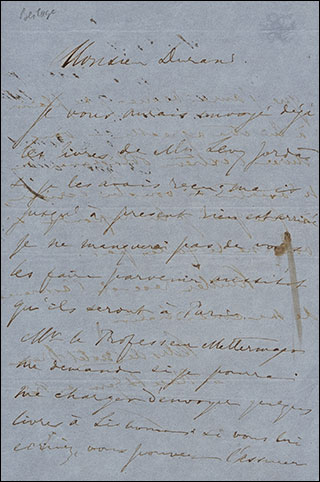 Monsieur Durand.
Je vous aurais envoyé déjà
les livres de Mr. Levy Jordan
si je les avais reçu, mais
jusqu'à présent rien est arrivé
je ne manquerai pas de vous
les faire parvenir aussitot
qu'ils seront à Paris
Mr. le Professeur
me demande si je pourrai
me charger d'envoyer quelques
livres à si vous lui
écrivez, vous pouvez l'assurer